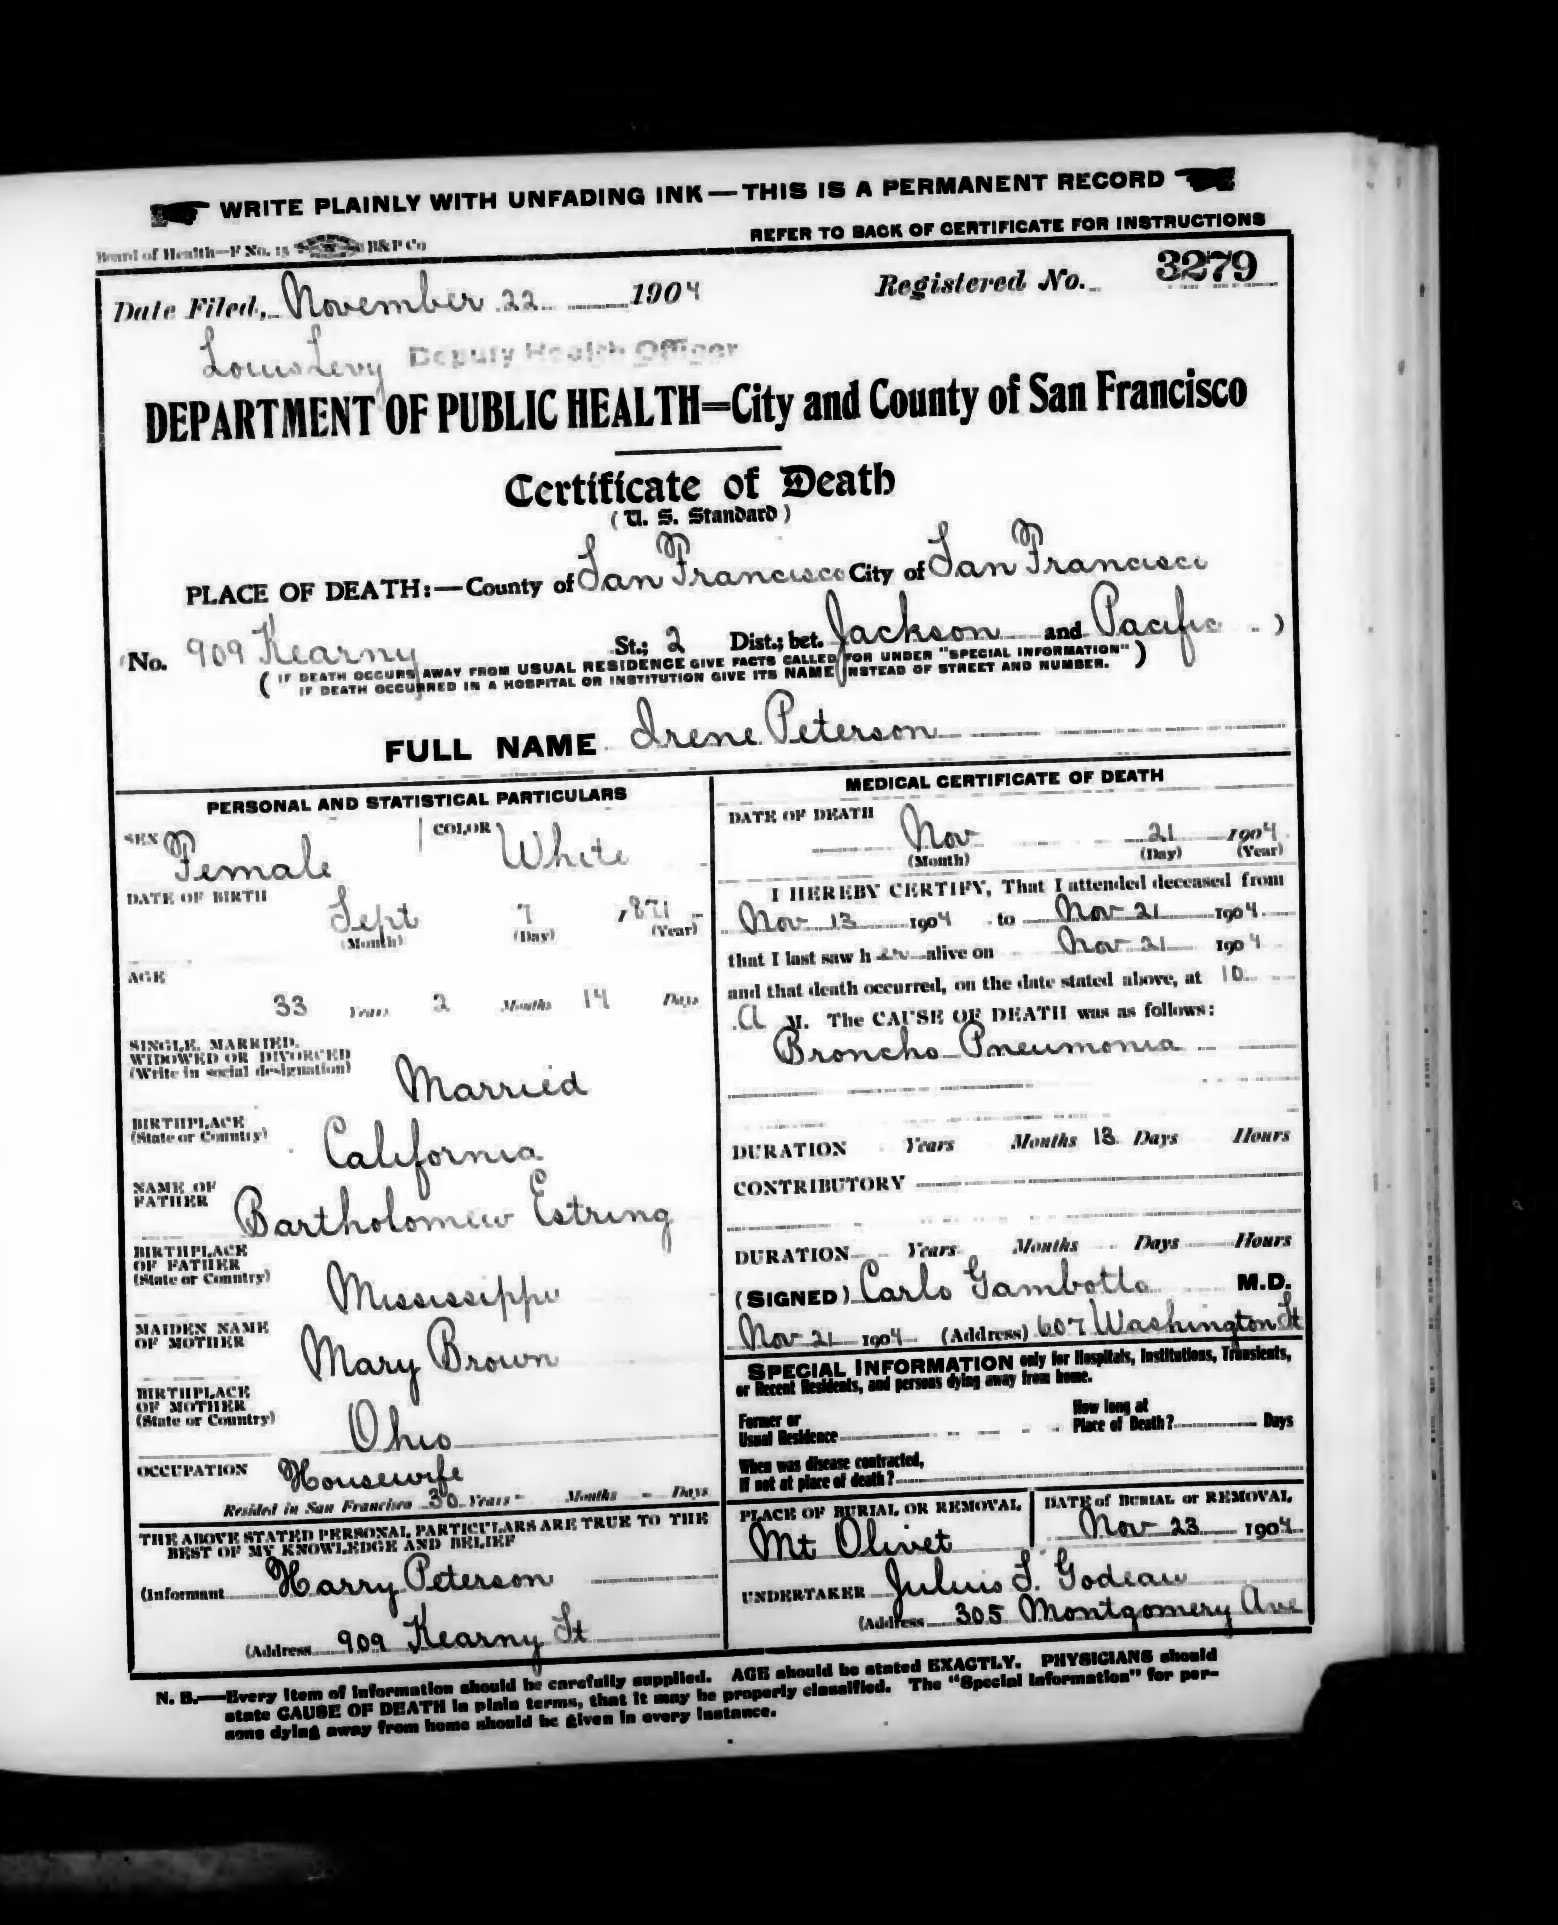 WRITE PLAINLY WITH UNFADING INK—THIS IS A PERMANENT RECORD
Board of Health—F No. 15 B&P Co
REFER TO BACK OF CERTIFICATE FOR INSTRUCTIONS
Date Filed, November 22 1904 Registered No. 3279
Louis Levy Deputy Health Officer
DEPARTMENT OF PUBLIC HEALTH—City and County of San Francisco
Certificate of Death
(U. S. Standard)
PLACE OF DEATH:—County of San Francisco City of San Francisco
(No. 909 Kearny St.; 2 Dist.; bet. Jackson and Pacific )
( IF DEATH OCCURS AWAY FROM USUAL RESIDENCE GIVE FACTS CALLED FOR UNDER "SPECIAL INFORMATION" )
IF DEATH OCCURRED IN A HOSPITAL OR INSTITUTION GIVE ITS NAME INSTEAD OF STREET AND NUMBER.
FULL NAME Irene Peterson
PERSONAL AND STATISTICAL PARTICULARS
SEX Female COLOR White
DATE OF BIRTH
Sept 7 1871
(Month) (Day) (Year)
AGE
33 Years 2 Months 14 Days
SINGLE, MARRIED,
WIDOWED OR DIVORCED
(Write in social designation)
Married
BIRTHPLACE
(State or Country)
California
NAME OF
FATHER
Bartholomew Estring
BIRTHPLACE
OF FATHER
(State or Country)
Mississippi
MAIDEN NAME
OF MOTHER
Mary Brown
BIRTHPLACE
OF MOTHER
(State or Country)
Ohio
OCCUPATION Housewife
Resided in San Francisco 30 Years - Months - Days
THE ABOVE STATED PERSONAL PARTICULARS ARE TRUE TO THE
BEST OF MY KNOWLEDGE AND BELIEF
(Informant Harry Peterson
(Address 909 Kearny St
MEDICAL CERTIFICATE OF DEATH
DATE OF DEATH
Nov 21 1904
(Month) (Day) (Year)
I HEREBY CERTIFY, That I attended deceased from
Nov 13 1904 to Nov 21 1904
that I last saw h er alive on Nov 21 1904
and that death occurred, on the date stated above, at 10
A M. The CAUSE OF DEATH was as follows:
Broncho Pneumonia
DURATION Years Months 13 Days Hours
CONTRIBUTORY
DURATION Years Months Days Hours
(SIGNED) Carlo Gambotto M.D.
Nov 21 1904 (Address) 607 Washington St
SPECIAL INFORMATION only for Hospitals, Institutions, Transients,
or Recent Residents, and persons dying away from home.
Former or
Usual Residence
How long at
Place of Death? Days
When was disease contracted,
If not at place of death?
PLACE OF BURIAL OR REMOVAL
Mt Olivet
DATE of BURIAL or REMOVAL
Nov 23 1904
UNDERTAKER Julius S. Godeau
(Address 305 Montgomery Ave
N. B.—Every item of information should be carefully supplied. AGE should be stated EXACTLY. PHYSICIANS should
state CAUSE OF DEATH in plain terms, that it may be properly classified. The "Special Information" for per-
sons dying away from home should be given in every instance.